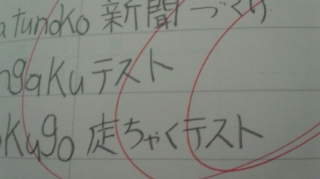 atunoko 新聞づくり
ngaku テスト
okugo 定ちゃくテスト